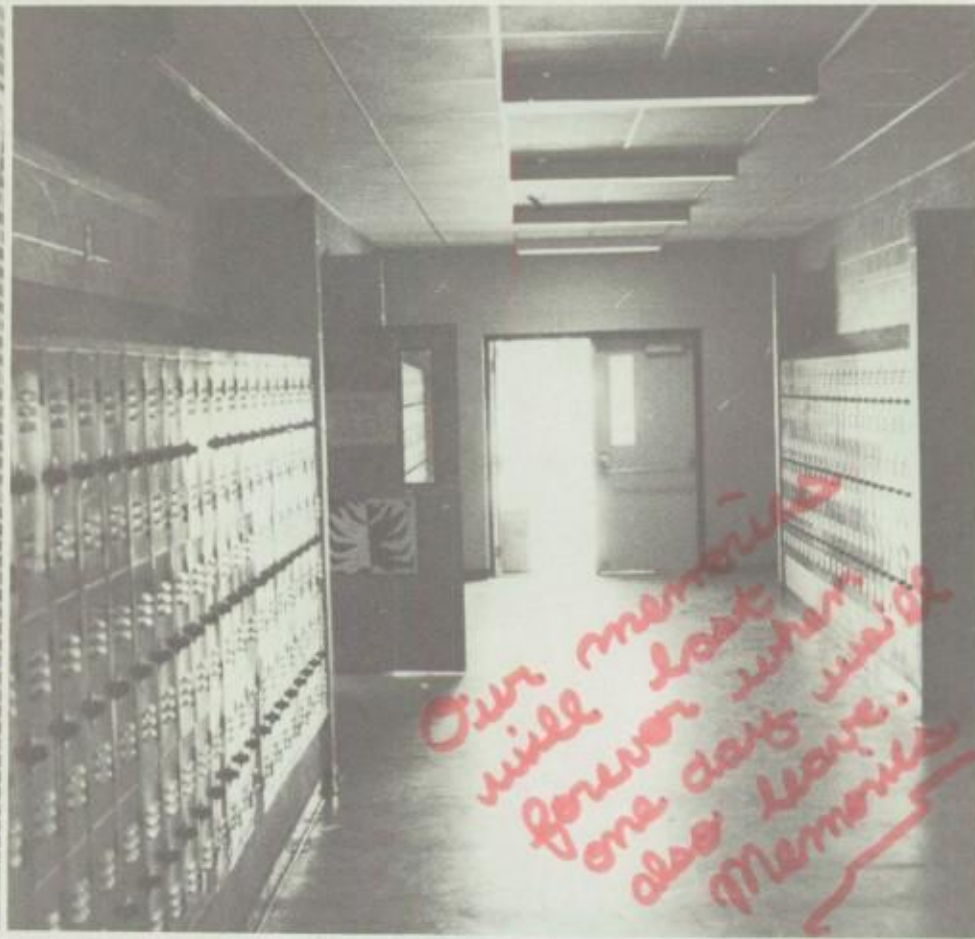 Our memories
will last
forever when
one day we'll
also leave.
Memories